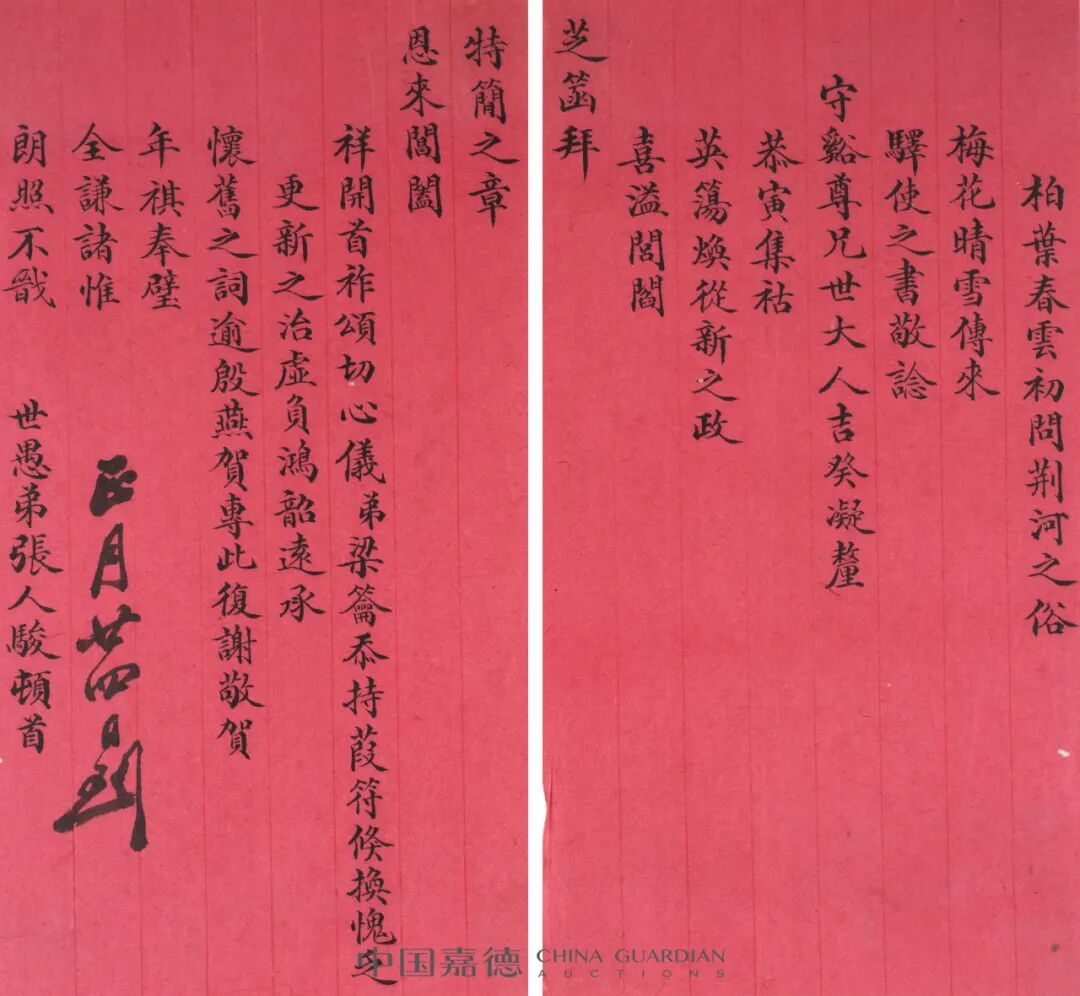 柏葉春雲初問荆河之俗
梅花晴雪傳來
驛使之書敬諗
守谿尊兄世大人吉癸凝釐
恭寅集祜
英蕩煥從新之政
喜溢閭閻
芝函拜
特簡之章
恩來閶闔
祥開首祚頌切心儀弟梁籥忝持葭符倏換愧乏
更新之治虛負鴻韶遠承
懷舊之詞逾殷燕賀專此復謝敬賀
年祺奉璧
全謙諸惟
朗照不戩
世愚弟張人駿頓首
正月廿四日到
中国嘉德 CHINA GUARDIAN
AUCTIONS